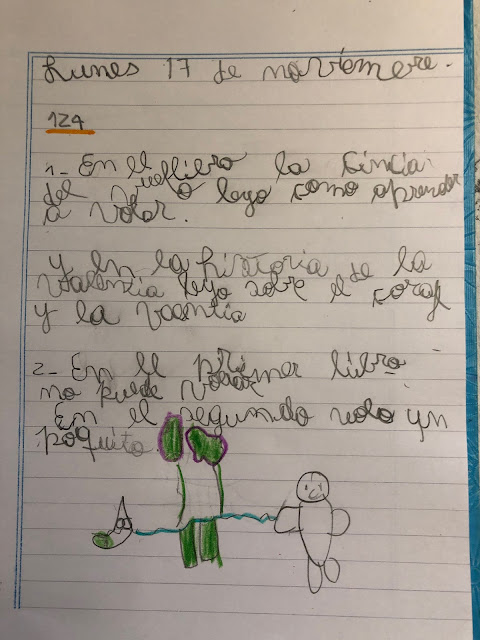 Lunes 17 de noviemere.
124
1- En el libro la Cincia
del vuelo leyo como aprender
a volar.
y en la historia de la
valentia leyo sobre el coraje
y la vaentia
2- En el primer libro
no puede volar
En el segundo volo yn
poquito.